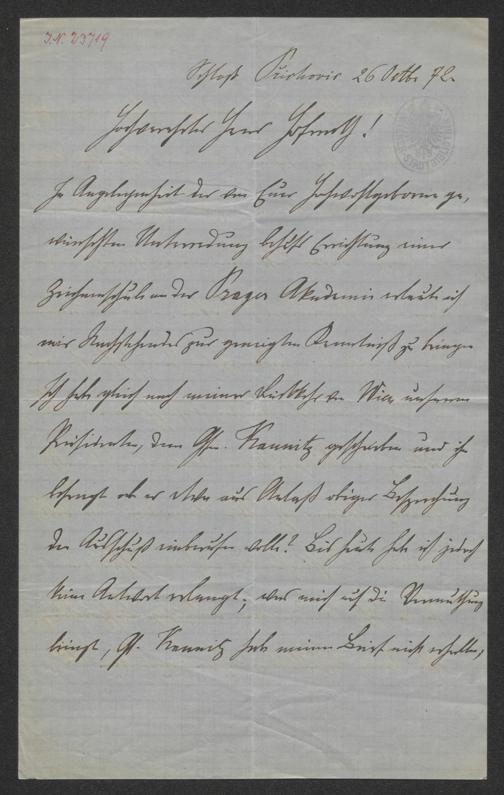 J.N. 23719
Schloß 26 Octbr 72.
Hochverehrter Herr Hofrath!
In Angelegenheit der von Euer Hochwohlgeboren ge-
wünschten Unterredung behufs Errichtung einer
Zeichenschule an der Prager Akademie erlaube ich
mir Nachstehendes zur geneigten Kenntniß zu bringen
Ich habe gleich nach meiner Rückkehr von Wien unserem
Präsidenten, dem Gfn. Kaunitz geschrieben und ihn
befragt ob er etwa aus Anlaß obiger Besprechung
den Ausschuß einberufen wolle? Bis heute habe ich jedoch
keine Antwort erlangt, was mich auf die Vermuthung
bringt, Gf. Kaunitz habe meinen Brief nicht erhalten,